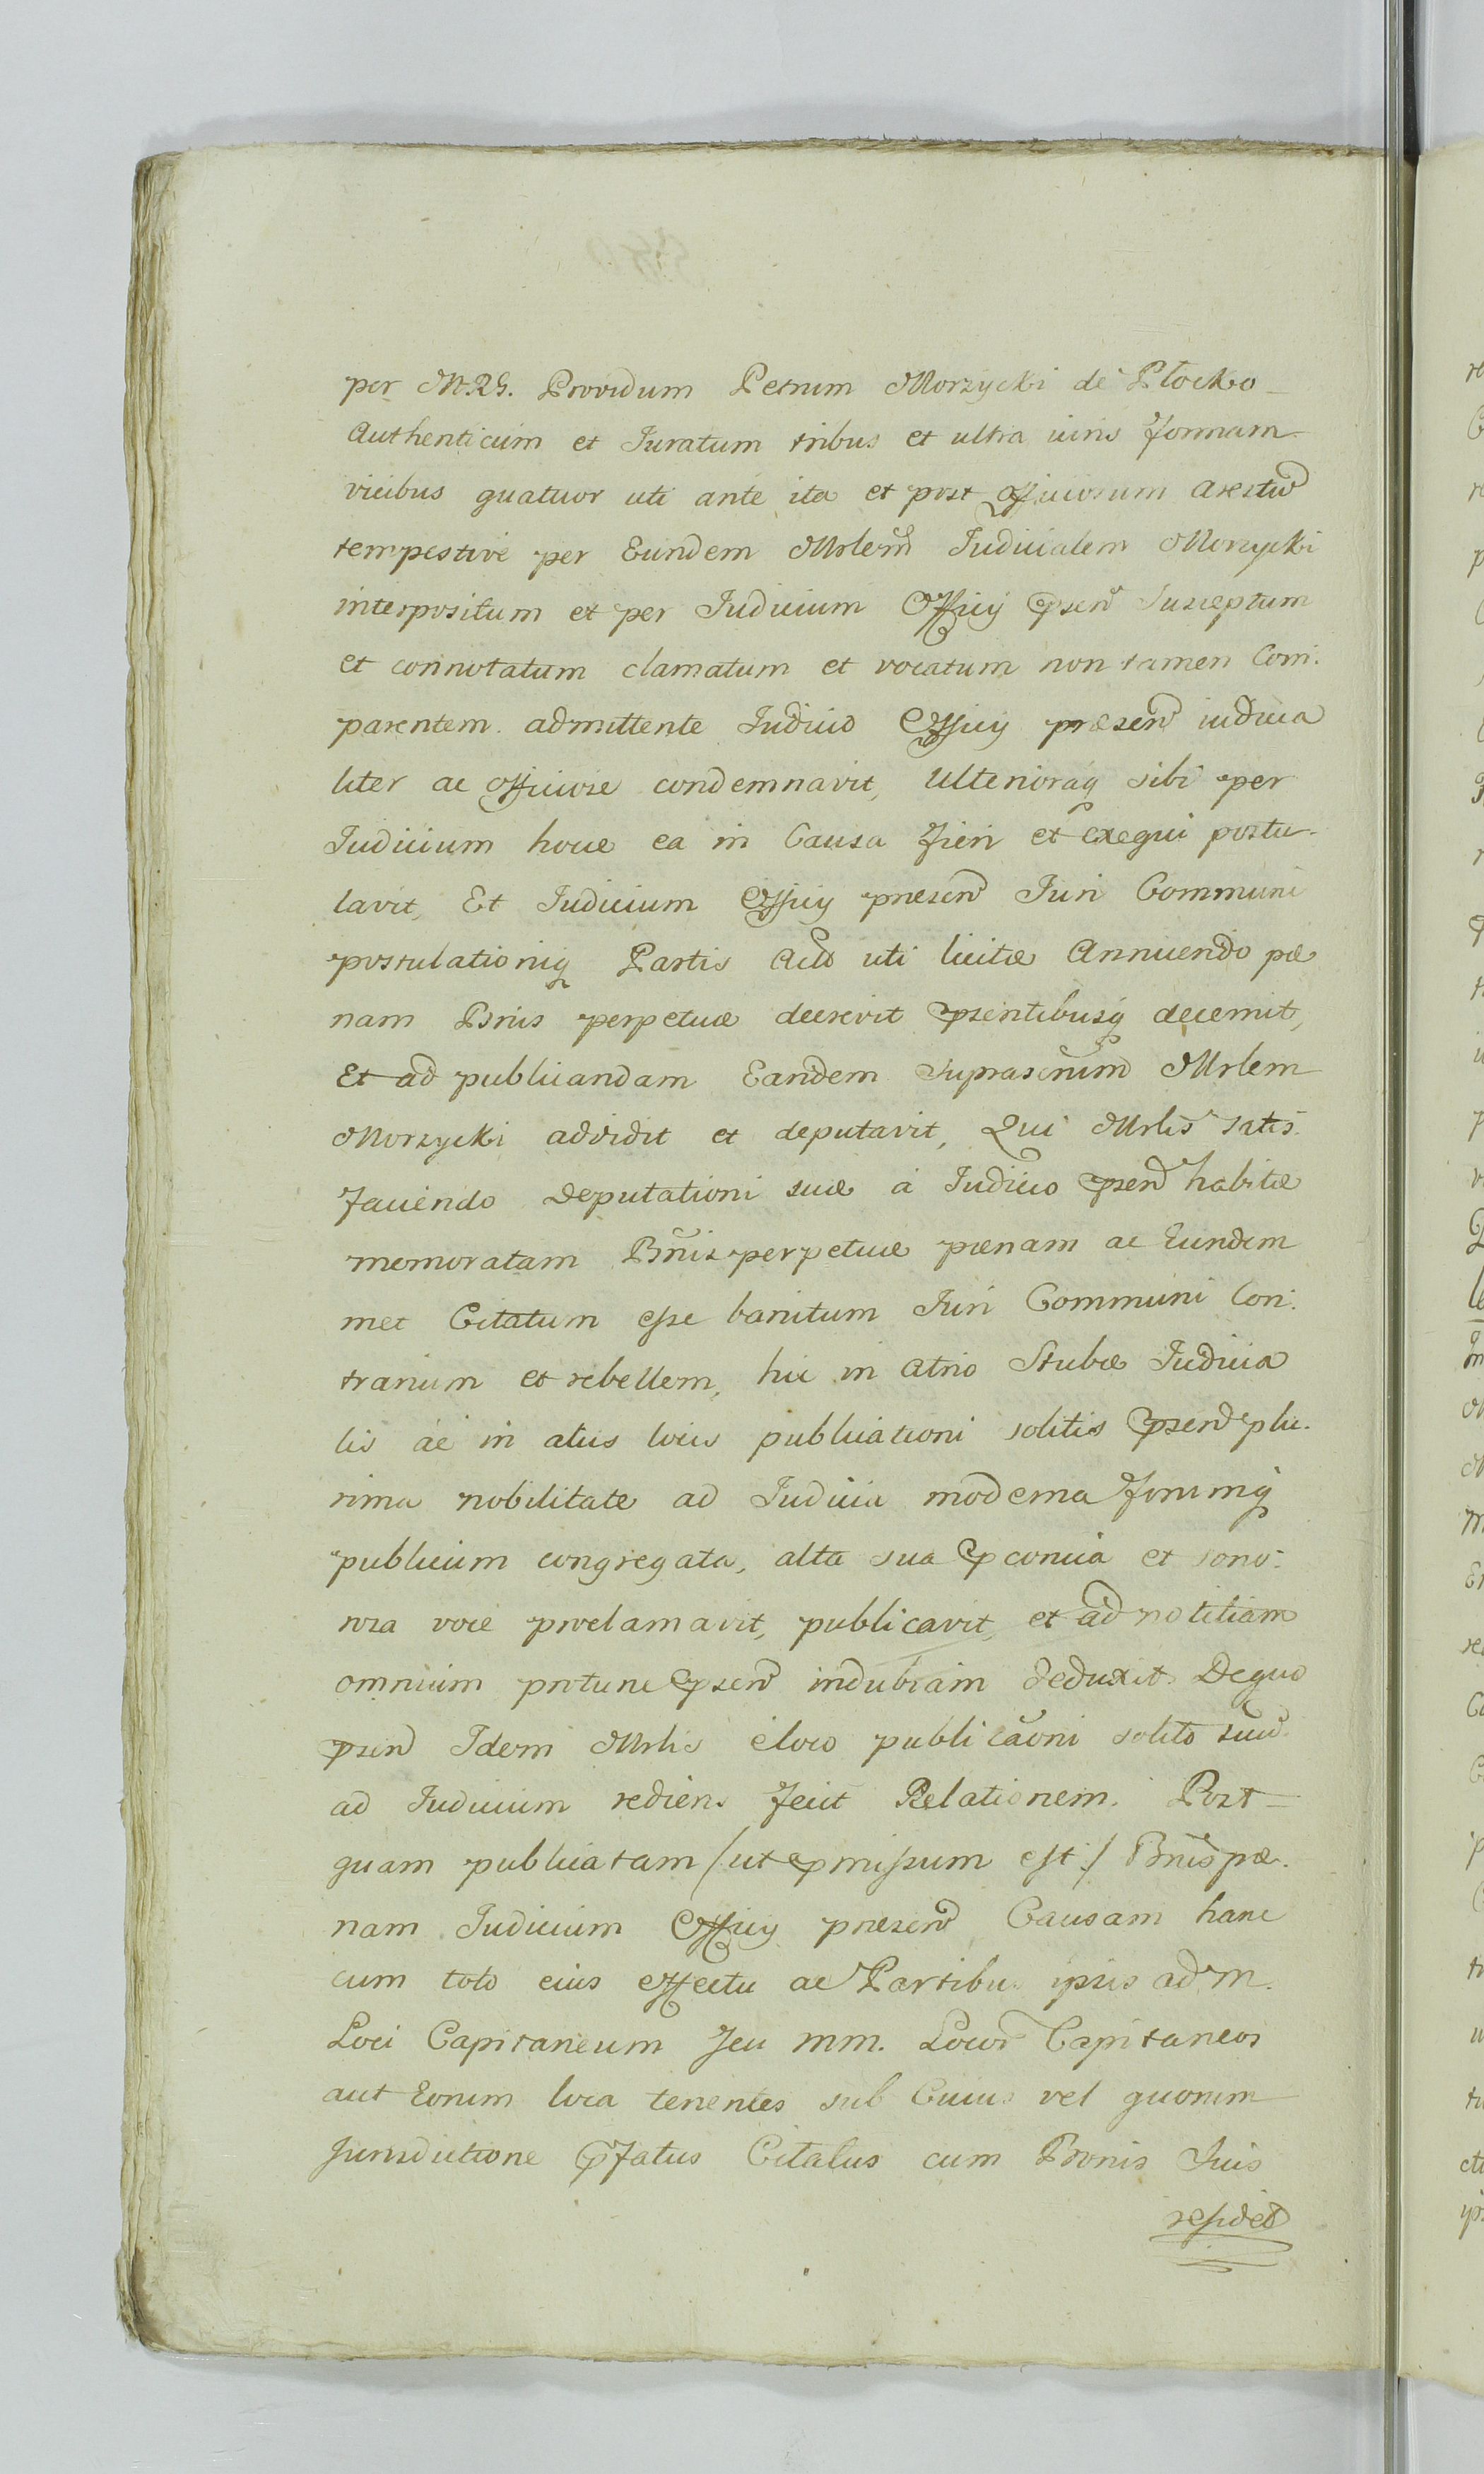 per M.R.G. Providum Petrum Morzycki de Plocko
Authenticum et Juratum tribus et ultra iuris formam
vicibus quatuor uti ante ita et post officiosum arestũ
tempestive per Eundem Mrlem Judicialem Morzycki
interpositum et per Judicium Officij psen Susceptum
et connotatum clamatum et vocatum non tamen Com:
parentem admittente Judicio Officij præsen iudicia
liter ac officiose condemnavit, Ulterioraq sibi per
Judicium hocce ea in Causa fieri et exequi postu:
lavit, Et Judicium Officij præsen Juri Communi
postulationiq Partis Act uti licitæ Annuendo pæ
nam Bnis perpetuæ decrevit psentibusq decernit,
Et ad publicandam Eandem Suprascrum Mrlem
Morzycki addidit et deputavit, Qui Mrlis satis
faciendo Deputationi suæ a Judicio psen habitæ
memoratam Bnis perpetuæ pænam ac Eundem
met Citatum esse banitum Juri Communi Con:
trarium et rebellem, hic in atrio Stubæ Judicia
lis ac in aliis locis publicationi solitis psen plu:
rima nobilitate ad Judicia moderna forumq
publicum congregata, alta sua pconica et sono:
rosa voce proclamavit, publicavit, et ad notitiam
omnium protunc psen indubiam deduxit. De quo
psen Idem Mrlis e loco publicaõni solito suũ
ad Judicium rediens fecit Relationem. Post
quam publicatam /ut pmissum est:/ Bnis pæ:
nam Judicium Officij præsen Causam hanc
cum toto eius effectu ac Partibus ipsis ad M.
Loci Capitaneum seu MM. Locor Capitaneos
aut Eorum loca tenentes sub Cuius vel quorum
Jurisdictione pfatus Citatus cum Bonis Suis
residet